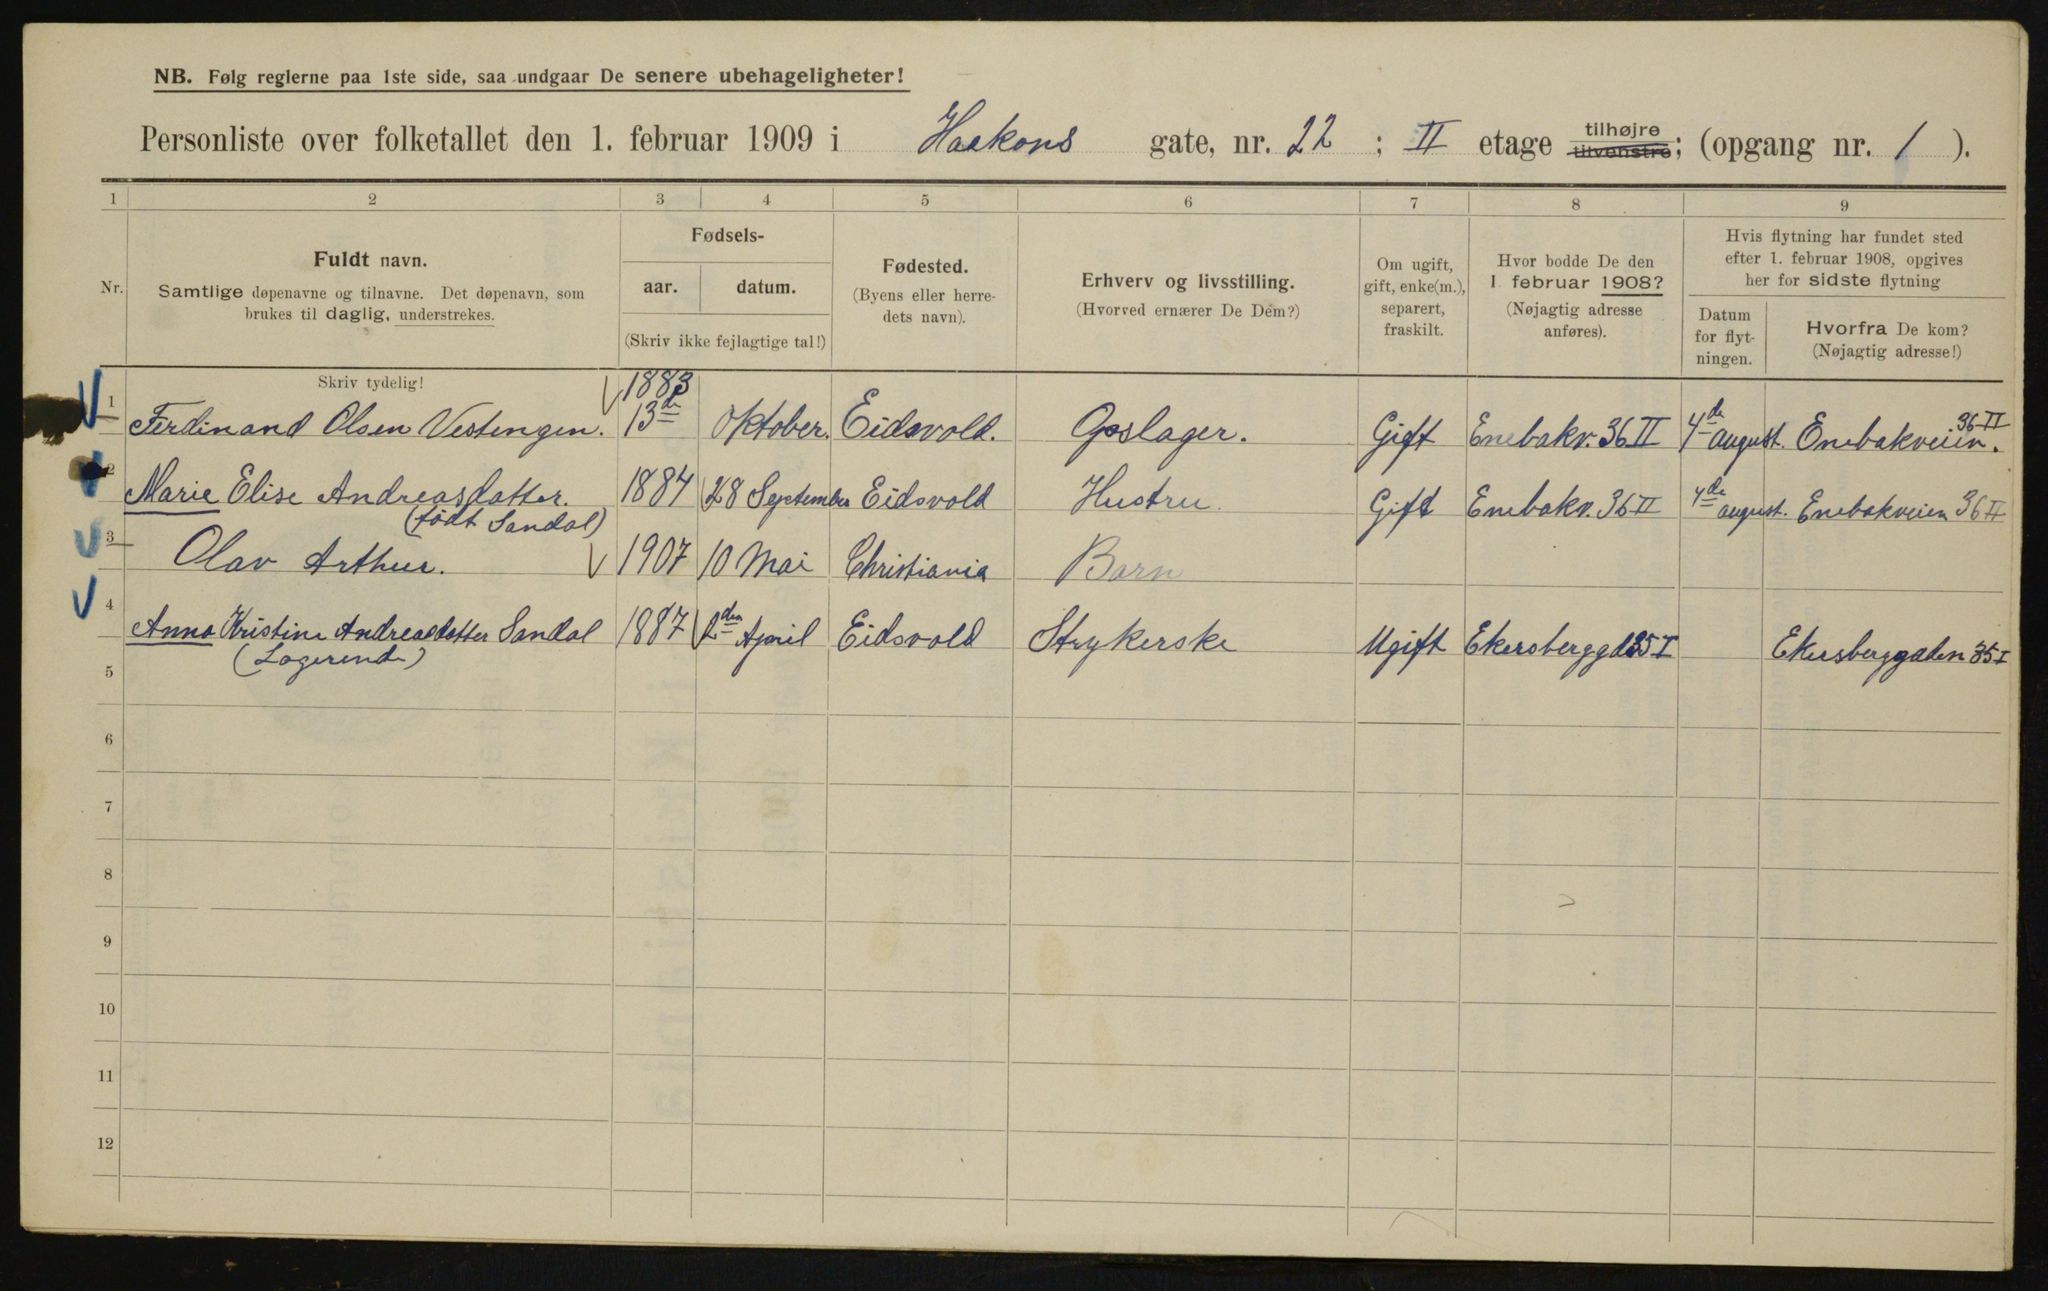 NB. Følg reglerne paa 1ste side, saa undgaar De senere ubehageligheter!
Personliste over folketallet den 1. februar 1909 i Haakons gate, nr. 22 ; II etage tilhøjre tilvenstre; (opgang nr. 1 ).
1 2 3 4 5 6 7 8 9
Nr.
Fuldt navn.
Samtlige døpenavne og tilnavne. Det døpenavn, som
brukes til daglig, understrekes.
Skriv tydelig!
Fødsels-
aar. datum.
(Skriv ikke fejlagtige tal!)
Fødested.
(Byens eller herre-
dets navn).
Erhverv og livsstilling.
(Hvorved ernærer De Dem?)
Om ugift,
gift, enke(m.),
separert,
fraskilt.
Hvor bodde De den
1 februar 1908?
(Nøjagtig adresse
anføres).
Hvis flytning har fundet sted
efter 1. februar 1908, opgives
her for sidste flytning
Datum
for flyt-
ningen.
Hvorfra De kom?
(Nøjagtig adresse!)
1883
1 Ferdinand Olsen Vestengen. 13de Oktober. Eidsvold. Opslager. Gift Enebakv. 36 II 4de august. Enebakveien. 36 II
2 Marie Elise Andreasdatter. 1884 28 September Eidsvold Hustru. Gift Enebakv. 36 II 4de august. Enebakveien 36 II
(født Sandal)
3 Olav Arthur. 1907 10 Mai Christiania Barn
4 Anna Kristine Andreasdatter Sandal 1887 2den April Eidsvold Strykerske Ugift Ekersberggd 35 I Ekersberggaden 35 I
(Logerende)
5
6
7
8
9
10
11
12